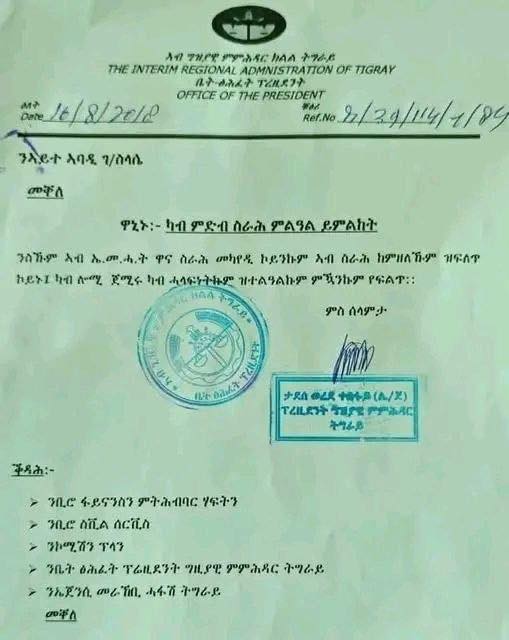 ኣብ ግዝያዊ ምምሕዳር ክልል ትግራይ
THE INTERIM REGIONAL ADMNISTRATION OF TIGRAY
ቤት-ፅሕፈት ፕሬዚደንት
OFFICE OF THE PRESIDENT
ዕለት
Date 16/8/2018
ቁፅሪ
Ref.No
ንኣይተ ኣባዲ ገ/ስላሴ
መቐለ
ዋኒኑ:- ካብ ምድብ ስራሕ ምልዓል ይምልከት
ንስኹም ኣብ ኤ.መ.ሓ.ት ዋና ስራሕ መካየዲ ኮይንኩም ኣብ ስራሕ ከምዘለኹም ዝፍለጥ
ኮይኑ፤ ካብ ሎሚ ጀሚሩ ካብ ሓላፍነትኩም ዝተልዓልኩም ምዃንኩም የፍልጥ::
ምስ ሰላምታ
ታደሰ ወረደ ተስፋይ (ሌ/ጀ)
ፕረዚደንት ግዝያዊ ምምሕዳር
ትግራይ
ቅዳሕ:-
➢ ንቢሮ ፋይናንስን ምትሕብባር ሃፍትን
➢ ንቢሮ ስቪል ሰርቪስ
➢ ንኮሚሽን ፕላን
➢ ንቤት ፅሕፈት ፕሬዚደንት ግዚያዊ ምምሕዳር ትግራይ
➢ ንኤጀንሲ መራኸቢ ሓፋሽ ትግራይ
መቐለ